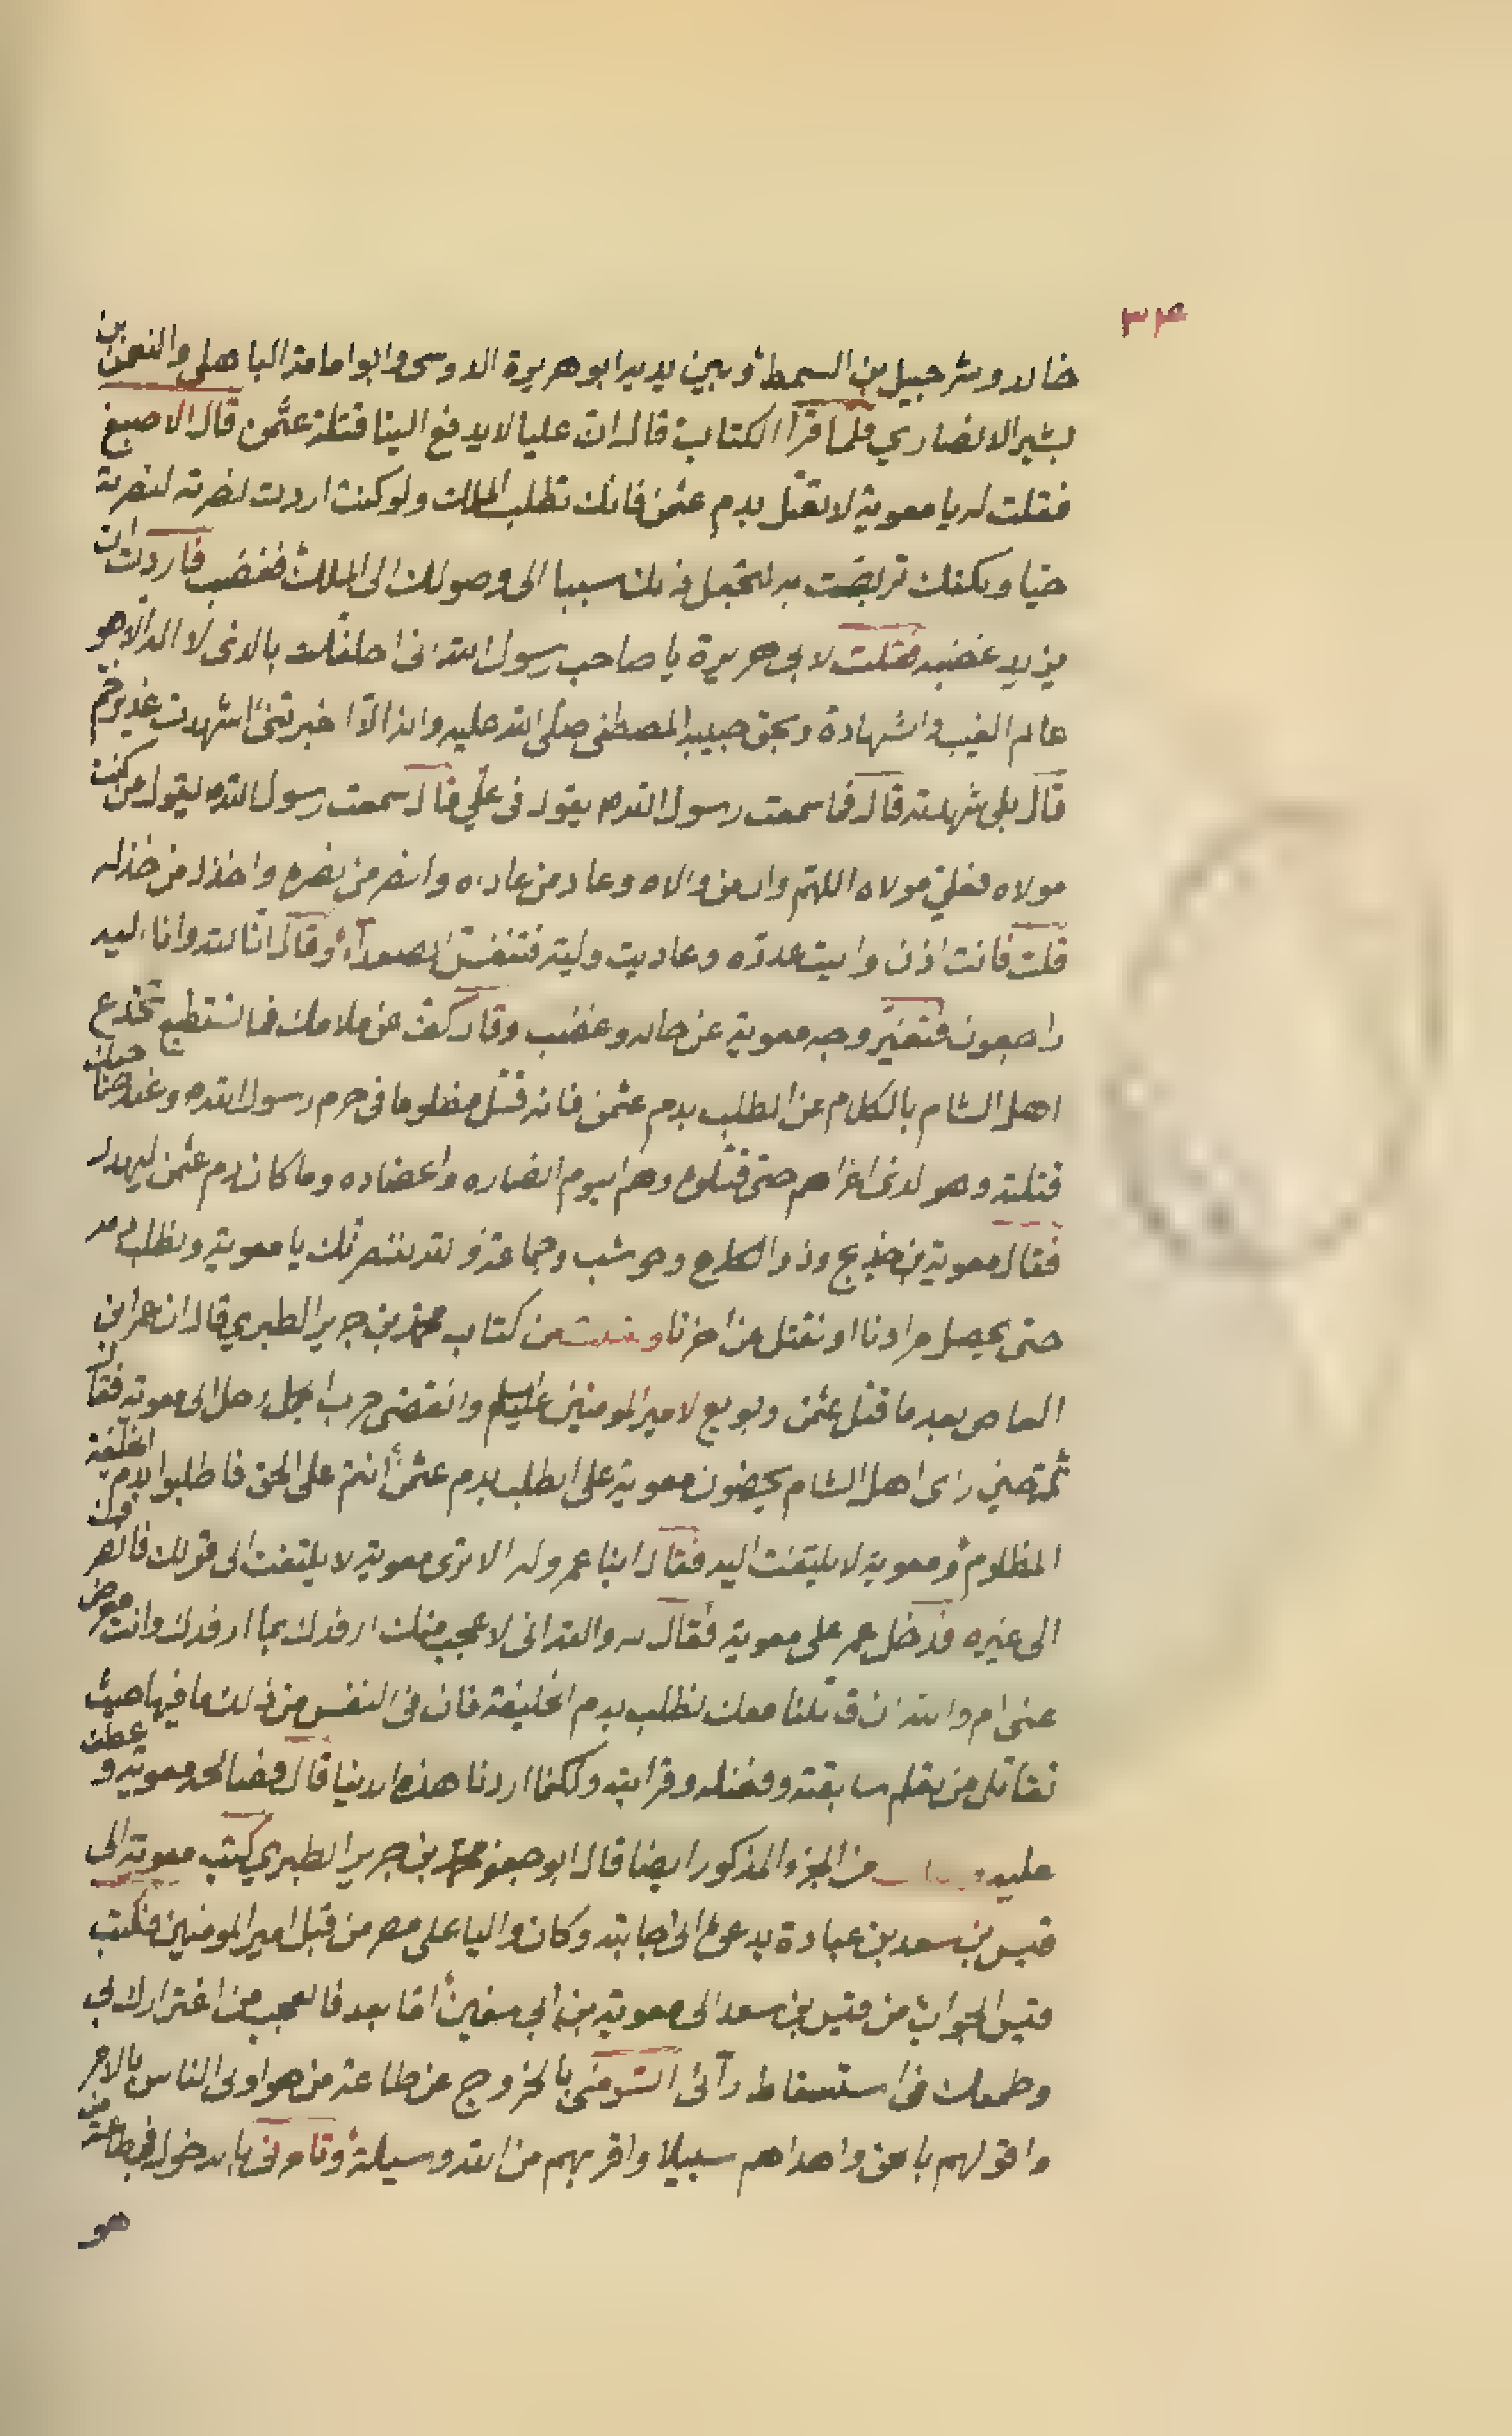 خالد وشرحبيل بن السمط وبين يديه ابو هريرة الدوسى وابو امامة الباهلى والنعمن بن
بشير الانصاري فلما قرأ الكتاب قال ان عليا لا يدفع الينا قتلة عثمن قال الاصبغ
فقلت له يا معوية لا تقتل بدم عثمن فانك تطلب الملك ولو كنت اردت نصرته لنصرته
حيا ولكنك تربصت به لتجعل ذلك سببا الى وصولك الى الملك فغضب فاردت ان
يزيد غضبه فقلت لابى هريرة يا صاحب رسول الله انى احلفك بالذى لا اله الا هو
عالم الغيب والشهادة وبحق حبيبه المصطفى صلى الله عليه واله الا اخبرتنى اشهدت غدير خم
قال بلى شهدته قال فما سمعت رسول الله م يقول فى علي قال سمعت رسول الله م يقول من كنت
مولاه فعلي مولاه اللهم وال من والاه وعاد من عاداه وانصر من نصره واخذل من خذله
قلت فانت اذن واليت عدوه وعاديت وليه فتنفس الصعداء وقال انا لله وانا اليه
راجعون فتغير وجه معوية عن حاله وغضب وقال كف عن ملامك فما نستطيع تخدع
اهل الشام بالكلام عن الطلب بدم عثمن فانه قتل مظلوما فى حرم رسول الله م وعند صاحبك
قتلته وهو لدى اغراهم حتى قتلوه وهم اليوم انصاره واعضاده وما كان دم عثمن ليهدر
فقال معوية بن خديج وذو الكلاع وحوشب وجماعة والله لننصرنك يا معوية ونطلب دمه
حتى يحصل مرادنا او نقتل عن اخرنا ومن كتاب محمد بن جرير الطبري قال ان عمرو بن
العاص بعد ما قتل عثمن وبويع لامير المومنين عليه السلم وانقضى حرب الجمل رحل الى معوية فقال
ثم تصفى راى اهل الشام يحضون معوية على الطلب بدم عثمن انتم على الحق فاطلبوا بدم الخليفة
المظلوم ومعوية لا يلتفت اليه فقال ابنا عمرو له الا ترى معوية لا يلتفت الى قولك فانصرف
الى غيره فدخل عمر على معوية فقال له والله انى لا عجب منك ارفدك بما ارفدك وانت معرض
عنى ام والله ان قاتلنا معك نطلب بدم الخليفة فان فى النفس من ذلك ما فيها حيث
نقاتل من تعلم سابقته وفضله وقرابته ولكنا اردنا هذه الدنيا قال فصالحه معوية وعطف
عليه من الجزء المذكور ايضا قال ابو جعفر محمد بن جرير الطبري كتب معوية الى
قيس بن سعد بن عبادة يدعوه الى اجابته وكان واليا على مصر من قبل امير المومنين فكتب
قيس الجواب من قيس بن سعد الى معوية بن ابى سفين اما بعد فالعجب من اغترارك بى
وطمعك فى استسقاط رأى اتسومنى بالخروج عن طاعة من هو اولى الناس بالامر
واقولهم بالحق واهداهم سبيلا واقربهم من الله وسيلة وتامرنى بالدخول فى طاعة من
هو